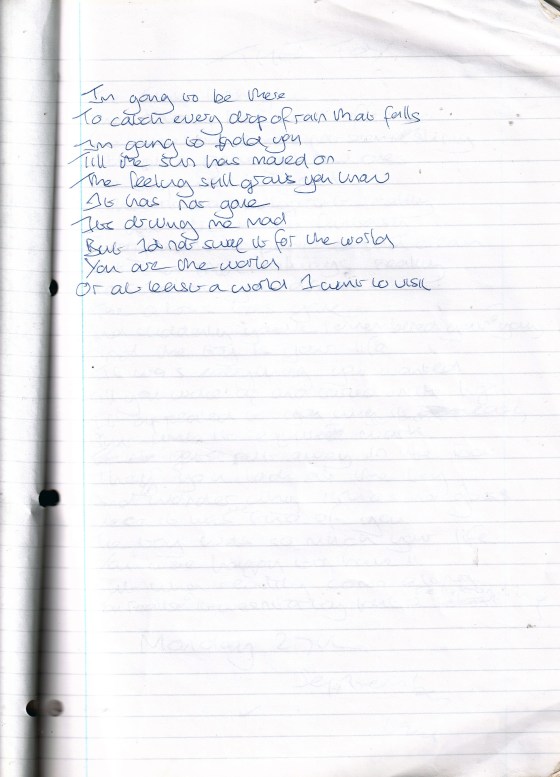 Im going to be there
To catch every drop of rain that falls
Im going to hold you
Till the sun has moved on
The feeling still grows you know
It has not gone
Its driving me mad
But Id not swap it for the world
You are the world
Or at least a world I want to visit